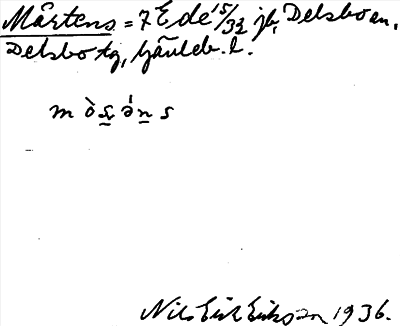 Mårtens = 7 E de 15/32 jb, Delsbo sn,
Delsbo tg, Gävleb. l.
m ò s̱ ə́ ṉ s
Nils Erik Eriksson 1936.